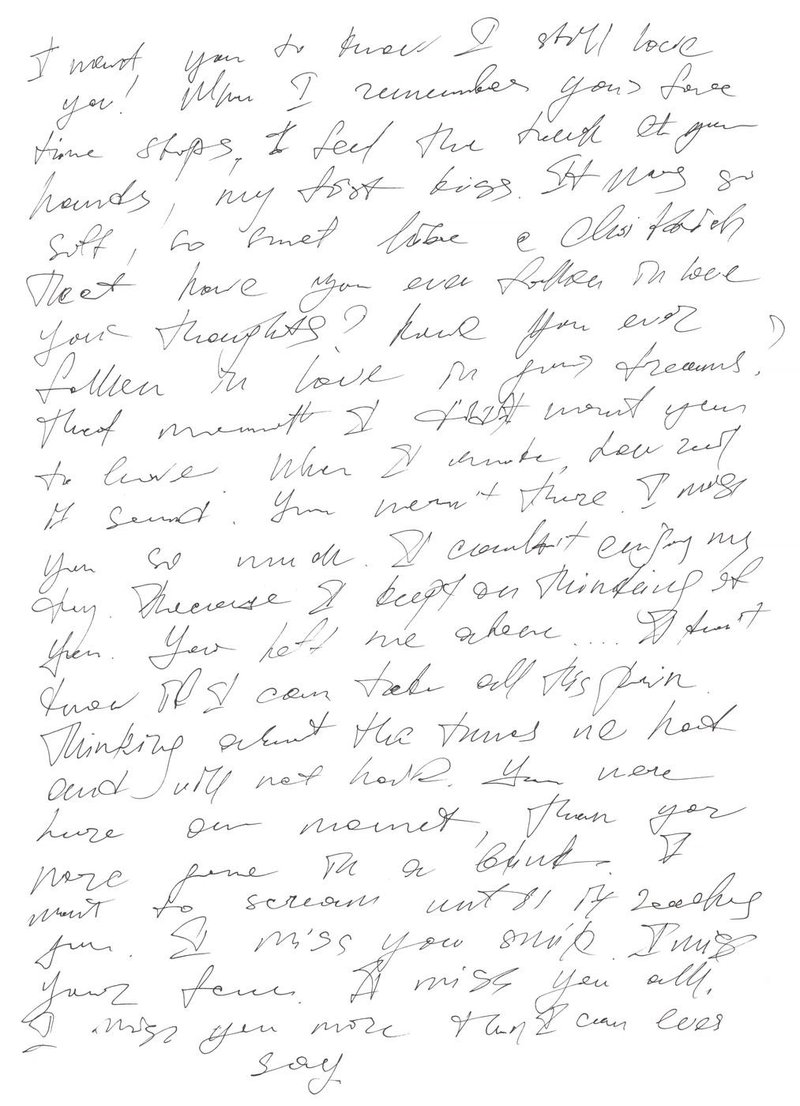 I want you to know I still love
you! When I remember your face
time stops, I feel the touch of your
hands, my first kiss. It was so
soft, so sweet like a
That have you ever fallen in love
your thoughts? have you ever
fallen in love in your dreams?
that moment I didn't want you
to leave. When I awoke,
it seemed. You weren't there. I miss
you so much. I couldn't enjoy my
day. Because I kept on thinking of
you. You left me alone.... I don't
know if I can take all this pain.
Thinking about the times we had
and will not have. You were
here one moment, than you
were gone in a blink. I
want to scream until it reaches
you. I miss you smile. I miss
your face. I miss you all.
I miss you more than I can ever
say